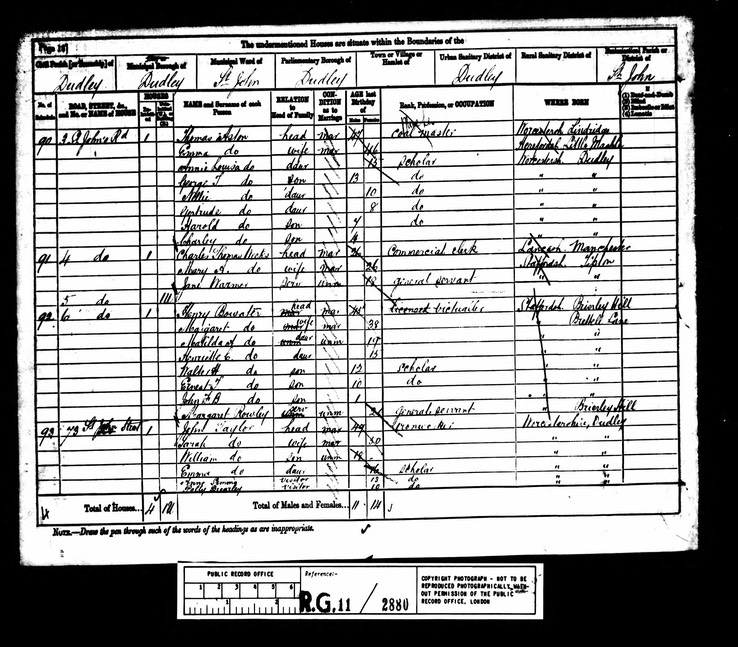 Page 18]
The undermentioned Houses are situate within the Boundaries of the
Civil Parish [or Township] of
Municipal Borough of
Municipal Ward of
Parliamentary Borough of
Town or Village or Hamlet of
Urban Sanitary District of
Rural Sanitary District of
Ecclesiastical Parish or District of
Dudley Dudley St John Dudley Dudley St John
No. of Schedule
ROAD, STREET, &c., and No. or NAME of HOUSE
HOUSES
NAME and Surname of each Person
RELATION to Head of Family
CONDITION as to Marriage
AGE last Birthday of
Males Females
Rank, Profession, or OCCUPATION
WHERE BORN
90 3 St John's Rd 1 Thomas Aston head mar 47 Coal master Worcestersh Lindridge
Emma do wife mar 46
Annie Louisa do daur 15 scholar Worcestersh Dudley
George T do son 13 do " "
Nellie do daur 10 do " "
Gertrude do daur 8 do " "
Harold do son 7 do " "
Charley do son 4 " "
91 4 do 1 Charles Thomas Hicks head mar 26 Commercial clerk Lancash Manchester
Mary A. do wife mar 26 Staffordsh Tipton
Jane Warner serv unm 18 general servant " "
5 do
92 6 do 1 Henry Bowater head mar 45 Licensed victualler Staffordsh Brierley Hill
Margaret do wife mar 38 " Brettell Lane
Matilda do daur unm 19 " "
do daur 15 " "
Walter H do son 13 scholar " "
Ernest T do son 10 do " "
John F B do son 1 " "
Margaret Rowley serv unm 21 general servant " Brierley Hill
93 73 St John Street 1 John Taylor head mar 49 Worcestershire, Dudley
Sarah do wife mar 50 " "
William do son unm 18 " "
Emma do daur scholar " "
visitor 13 do " "
Polly Brearley visitor 10 do " "
4 Total of Houses... 4 Total of Males and Females... 11 14
NOTE.—Draw the pen through such of the words of the headings as are inappropriate.
PUBLIC RECORD OFFICE
1 2 3 4 5 6
1 2
Reference:-
R.G. 11 / 2880
COPYRIGHT PHOTOGRAPH - NOT TO BE
REPRODUCED PHOTOGRAPHICALLY WITH-
OUT PERMISSION OF THE PUBLIC
RECORD OFFICE, LONDON